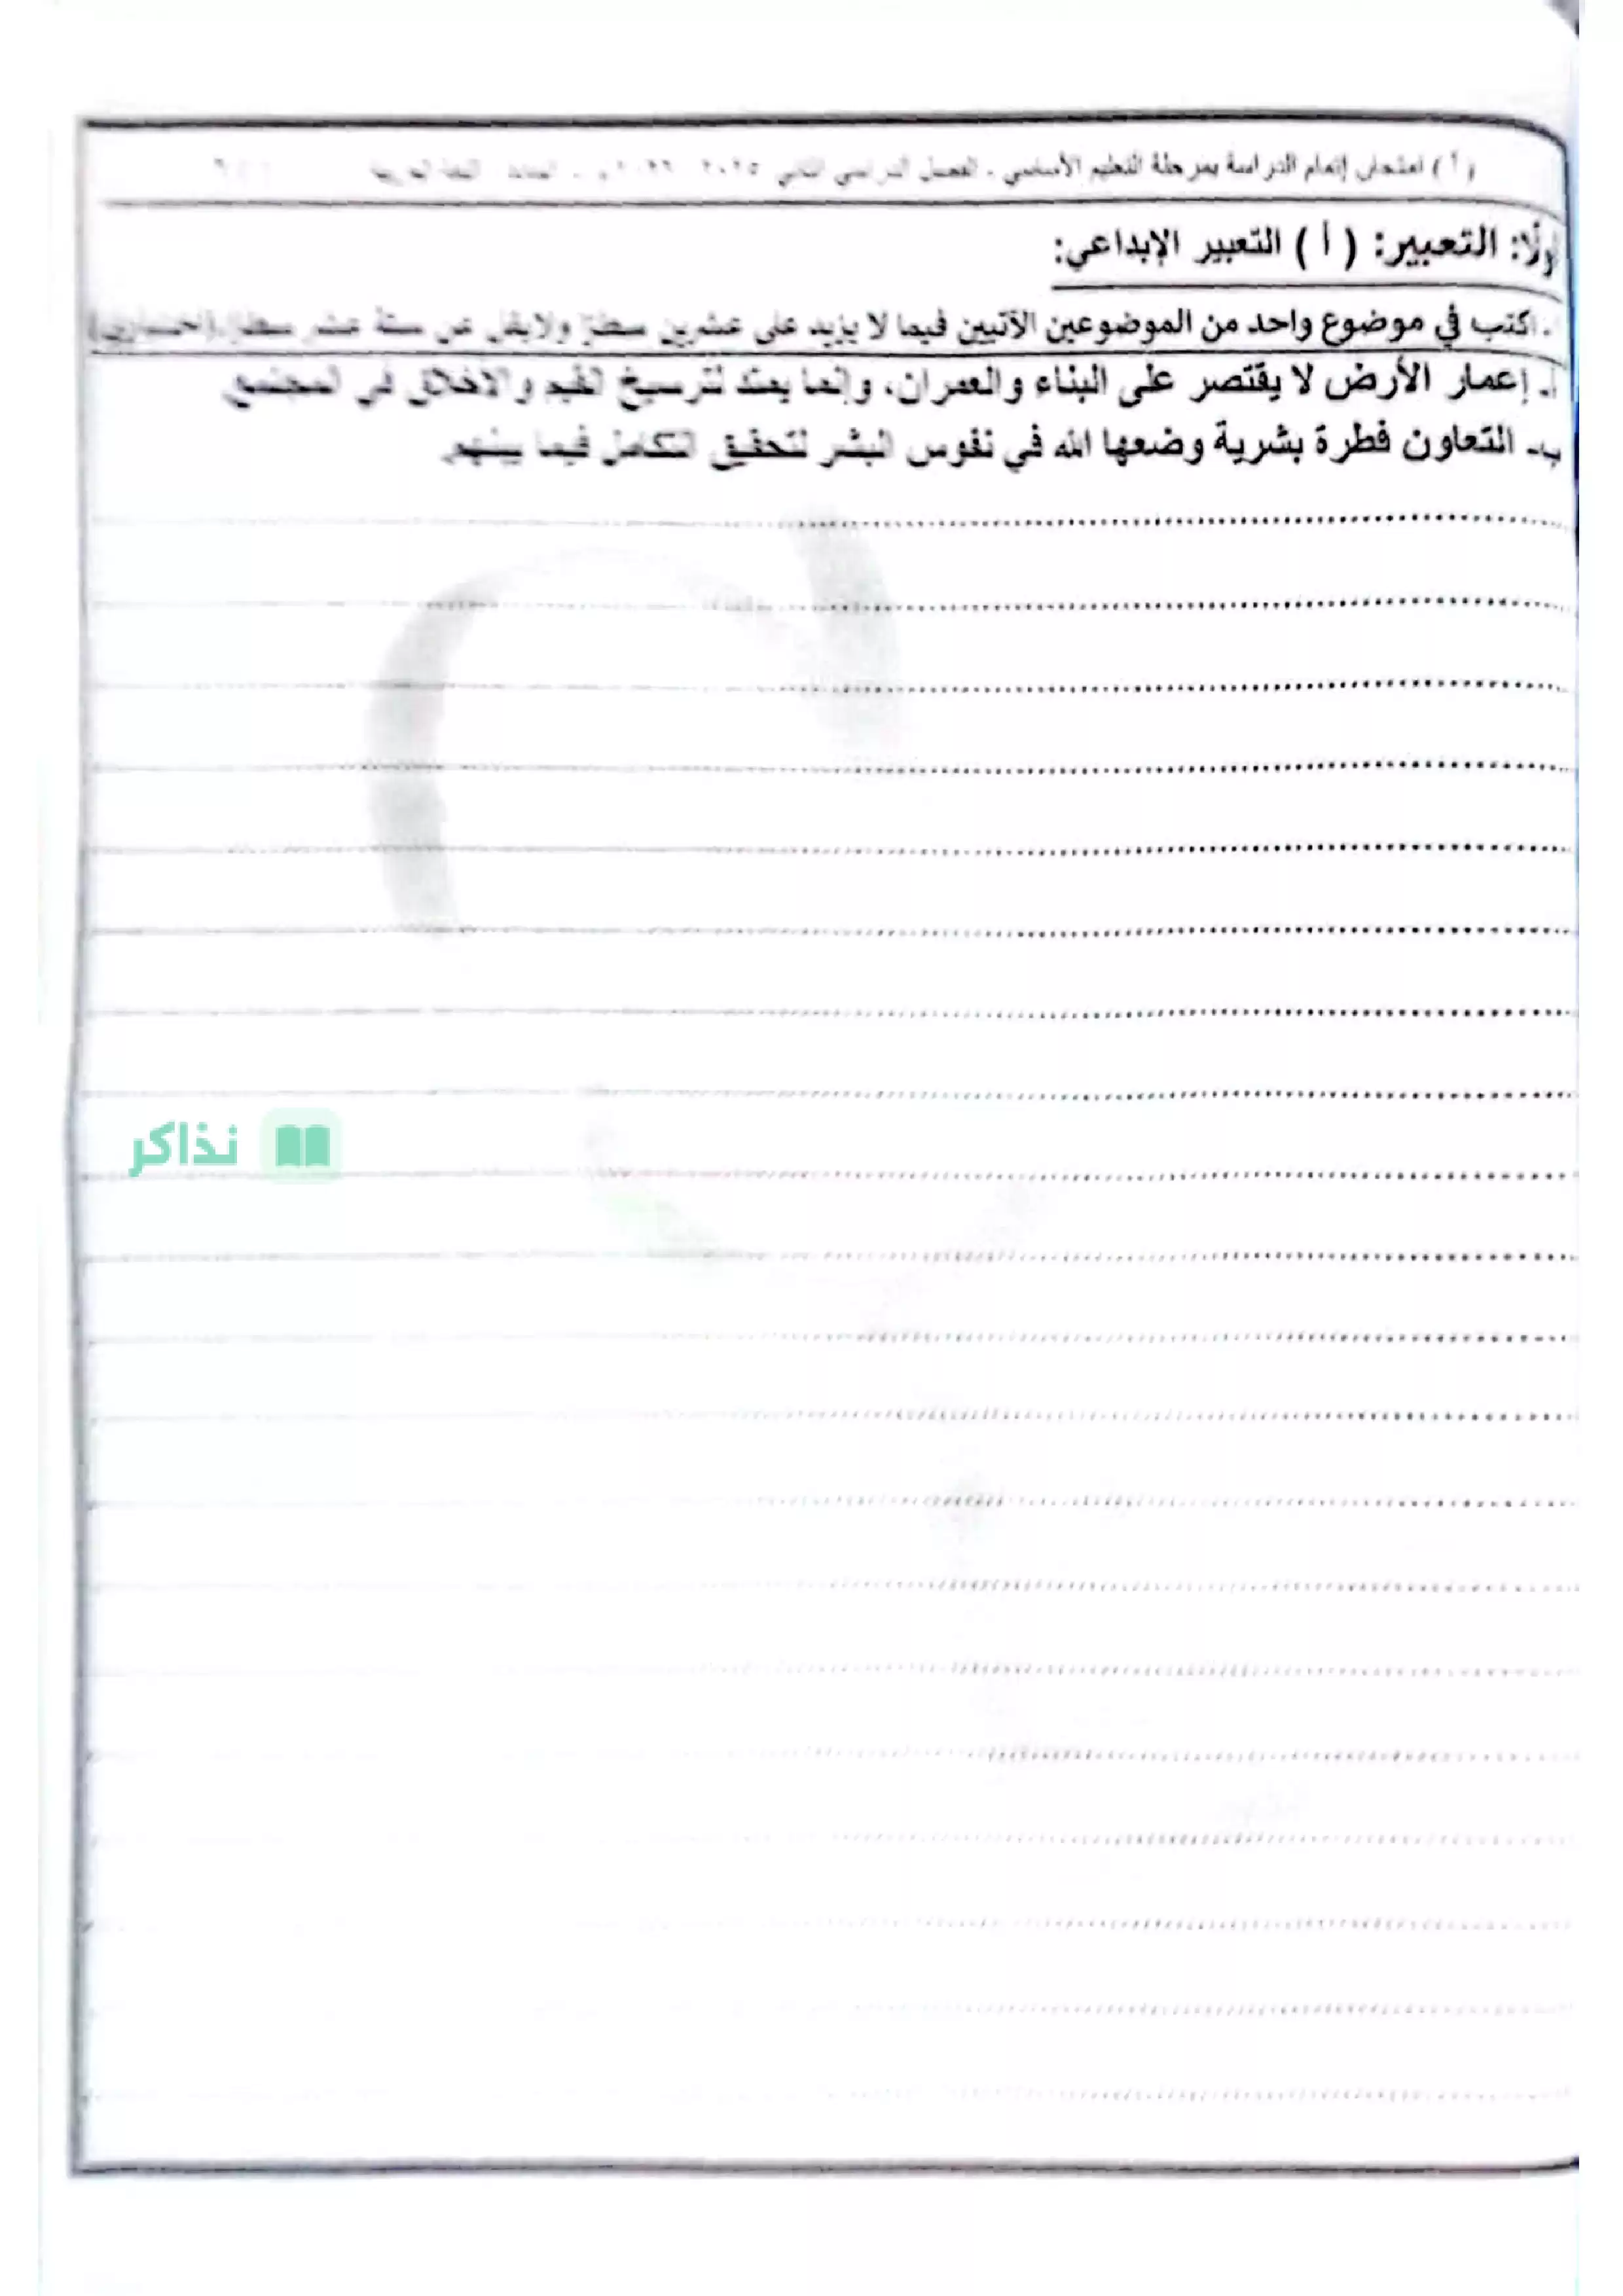 ( أ ) امتحان إتمام الدراسة بمرحلة التعليم الأساسي - الفصل الدراسي الثاني ٢٠٢٥
أولًا: التعبير: ( أ ) التعبير الإبداعي:
اكتب في موضوع واحد من الموضوعين الآتيين فيما لا يزيد على عشرين سطرًا ولا يقل عن ستة عشر سطرًا. (إجباري)
أ. إعمار الأرض لا يقتصر على البناء والعمران، وإنما يمتد لترسيخ القيم والأخلاق في المجتمع
ب- التعاون فطرة بشرية وضعها الله في نفوس البشر لتحقيق التكامل فيما بينهم.
نذاكر